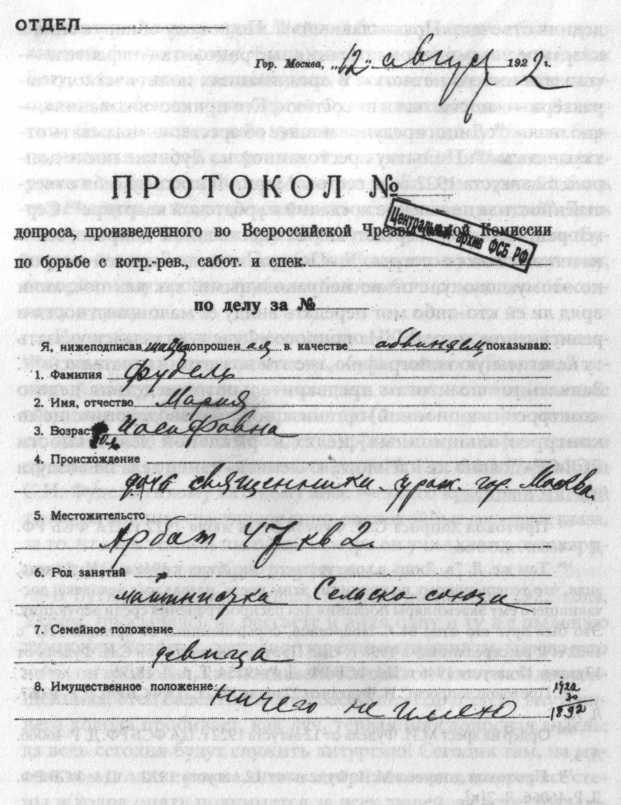 ОТДЕЛ
Гор. Москва, „12“ август 1922 г.
ПРОТОКОЛ №
допроса, произведенного во Всероссийской Чрезвычайной Комиссии
Центральный архив ФСБ РФ
по борьбе с котр.-рев., сабот. и спек.
по делу за №
Я, нижеподписавшаяся допрошенная в качестве обвиняем показываю:
1. Фамилия Фудель
2. Имя, отчество Мария
3. Возраст Иосифовна
30 л.
4. Происхождение
дочь священника гор. Москва
5. Местожительсто
Арбат 47 кв 2.
6. Род занятий
машинистка Сельско союза
7. Семейное положение
девица
8. Имущественное положение ничего не имею
1922
30
1892